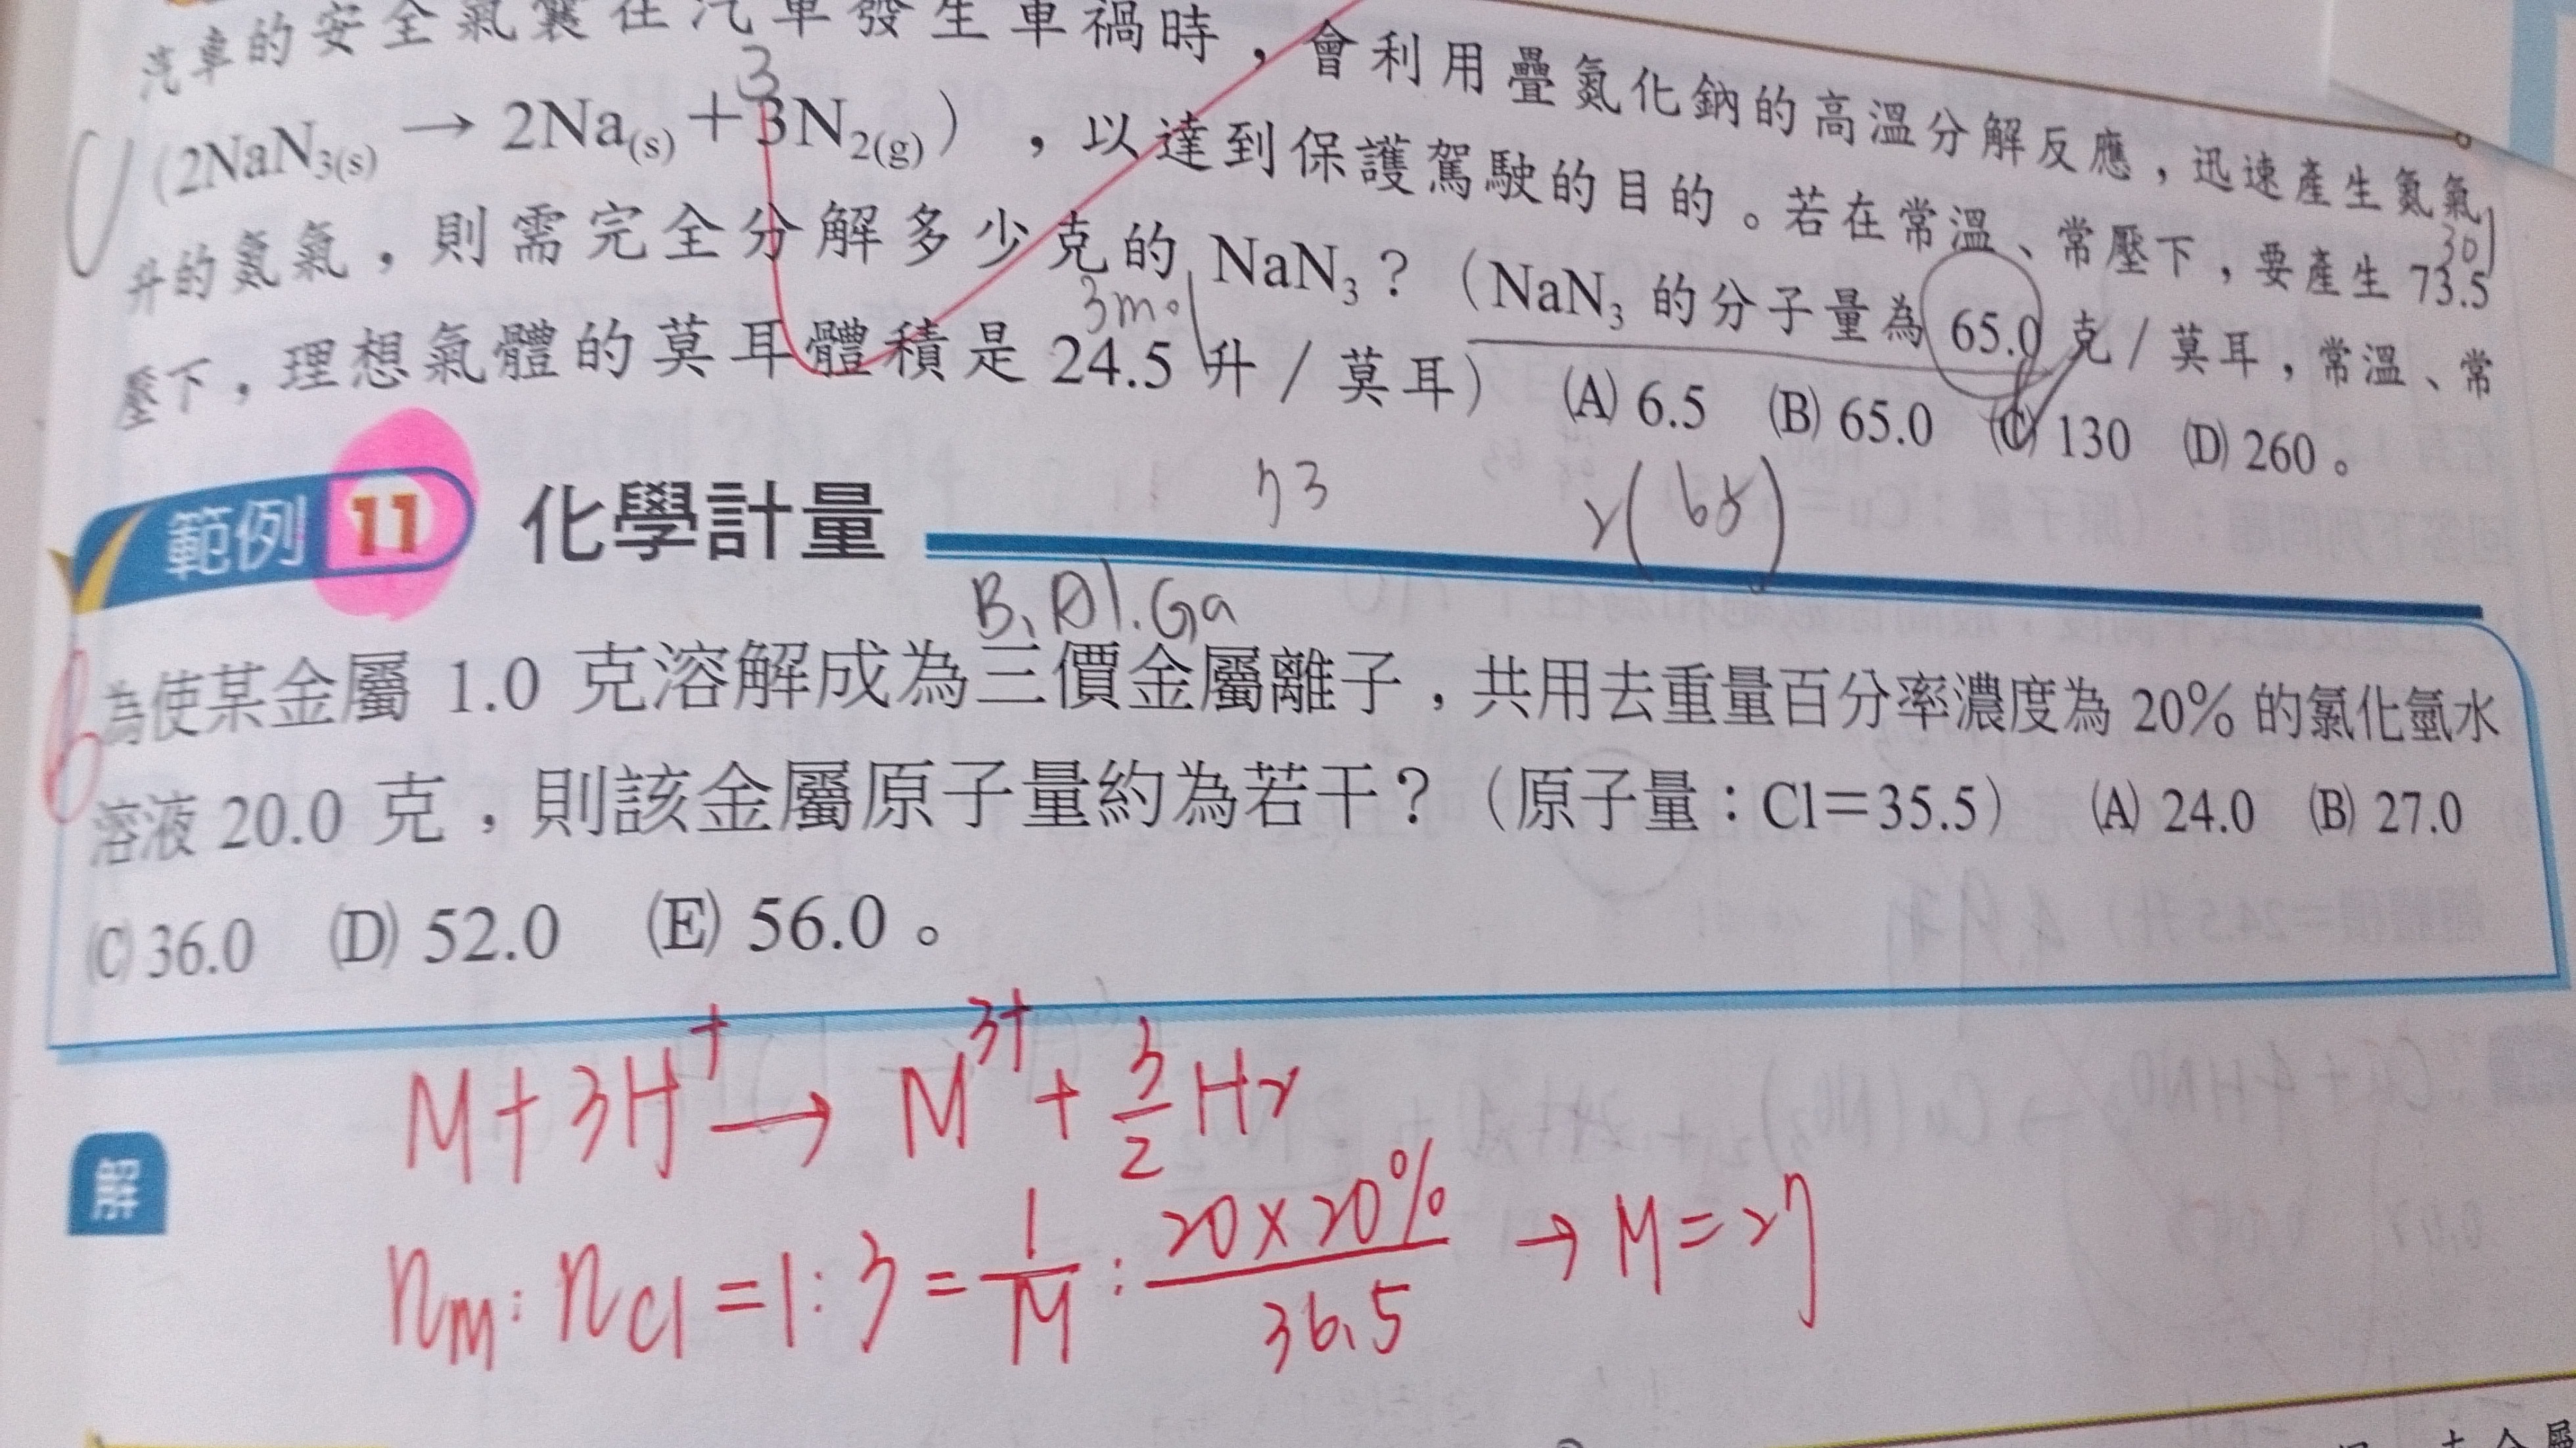 汽車的安全氣囊在汽車發生車禍時，會利用疊氮化鈉的高溫分解反應，迅速產生氮氣
3
(2NaN3(s) → 2Na(s)＋3N2(g))，以達到保護駕駛的目的。若在常溫、常壓下，要產生 73.5
升的氮氣，則需完全分解多少克的 NaN3？(NaN3 的分子量為 65.0 克／莫耳，常溫、常
3mol
壓下，理想氣體的莫耳體積是 24.5 升／莫耳) (A) 6.5 (B) 65.0 (C) 130 (D) 260。
2(65)
範例 11 化學計量
B, Al. Ga
為使某金屬 1.0 克溶解成為三價金屬離子，共用去重量百分率濃度為 20% 的氯化氫水
溶液 20.0 克，則該金屬原子量約為若干？(原子量：Cl＝35.5) (A) 24.0 (B) 27.0
(C) 36.0 (D) 52.0 (E) 56.0。
M + 3H+ → M3+ + 3/2 H2
解
nM : nCl = 1 : 3 = 1/M : 20×20%/36.5 → M = 27